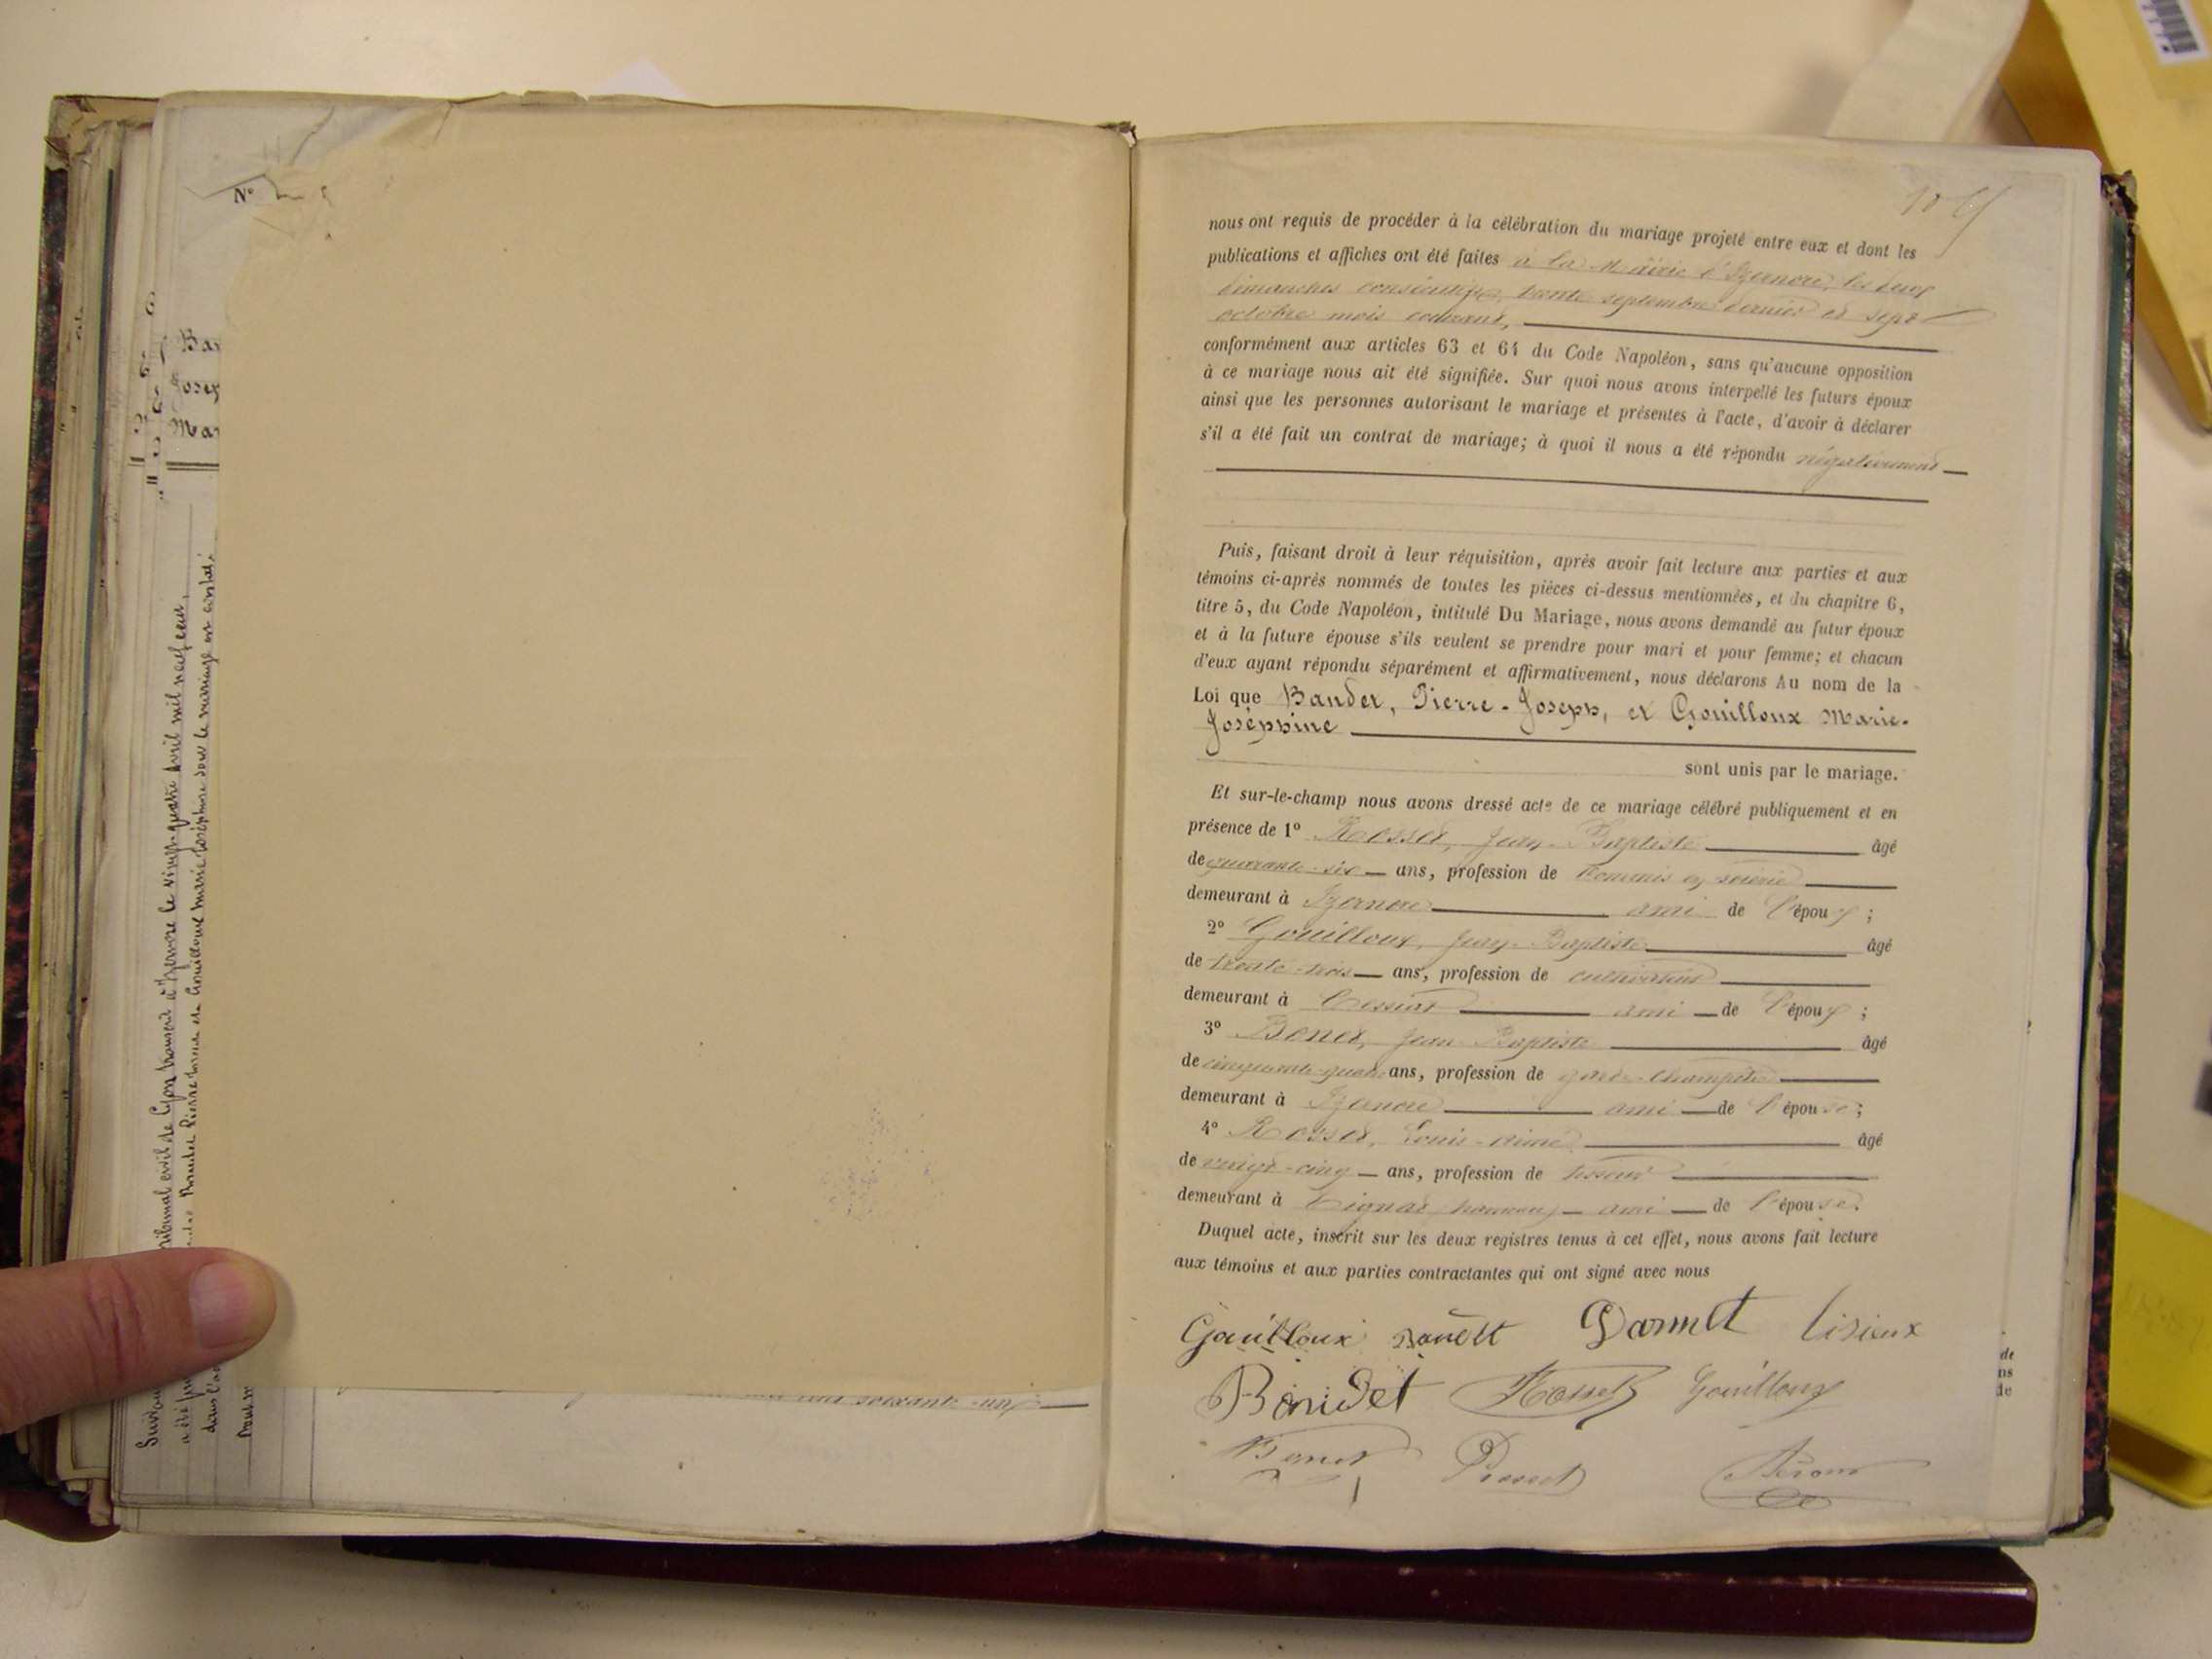 N°
Bau
Josep
Mar
tribunal civil de Lyon transcrit à Izernore le vingt-quatre avril mil neuf cent,
Baudet Pierre Joseph et Gouilloux Marie Joséphine dont le mariage est constaté
soixante-un
nous ont requis de procéder à la célébration du mariage projeté entre eux et dont les
publications et affiches ont été faites à la Mairie d'Izernore, les deux
dimanches consécutifs, trente septembre dernier et sept
octobre mois courant,
conformément aux articles 63 et 64 du Code Napoléon, sans qu'aucune opposition
à ce mariage nous ait été signifiée. Sur quoi nous avons interpellé les futurs époux
ainsi que les personnes autorisant le mariage et présentes à l'acte, d'avoir à déclarer
s'il a été fait un contrat de mariage; à quoi il nous a été répondu négativement
Puis, faisant droit à leur réquisition, après avoir fait lecture aux parties et aux
témoins ci-après nommés de toutes les pièces ci-dessus mentionnées, et du chapitre 6,
titre 5, du Code Napoléon, intitulé Du Mariage, nous avons demandé au futur époux
et à la future épouse s'ils veulent se prendre pour mari et pour femme; et chacun
d'eux ayant répondu séparément et affirmativement, nous déclarons Au nom de la
Loi que Baudet, Pierre-Joseph, et Gouilloux Marie-
Joséphine
sont unis par le mariage.
Et sur-le-champ nous avons dressé acte de ce mariage célébré publiquement et en
présence de 1° Rosset, Jean-Baptiste âgé
de quarante-six ans, profession de Commis en soierie
demeurant à Izernore ami de l'époux;
2° Gouilloux, Jean-Baptiste âgé
de trente-trois ans, profession de cultivateur
demeurant à Cessiat ami de l'époux;
3° Benet, Jean Baptiste âgé
de cinquante-quatre ans, profession de garde-Champêtre
demeurant à Izernore ami de l'épouse;
4° Rosset, Louis-Aimé âgé
de vingt-cinq ans, profession de tisseur
demeurant à Tignat, hameau, ami de l'épouse.
Duquel acte, inscrit sur les deux registres tenus à cet effet, nous avons fait lecture
aux témoins et aux parties contractantes qui ont signé avec nous
Gouilloux
Baudet Rosset Gouilloux
Benet Rosset
de
ns
de